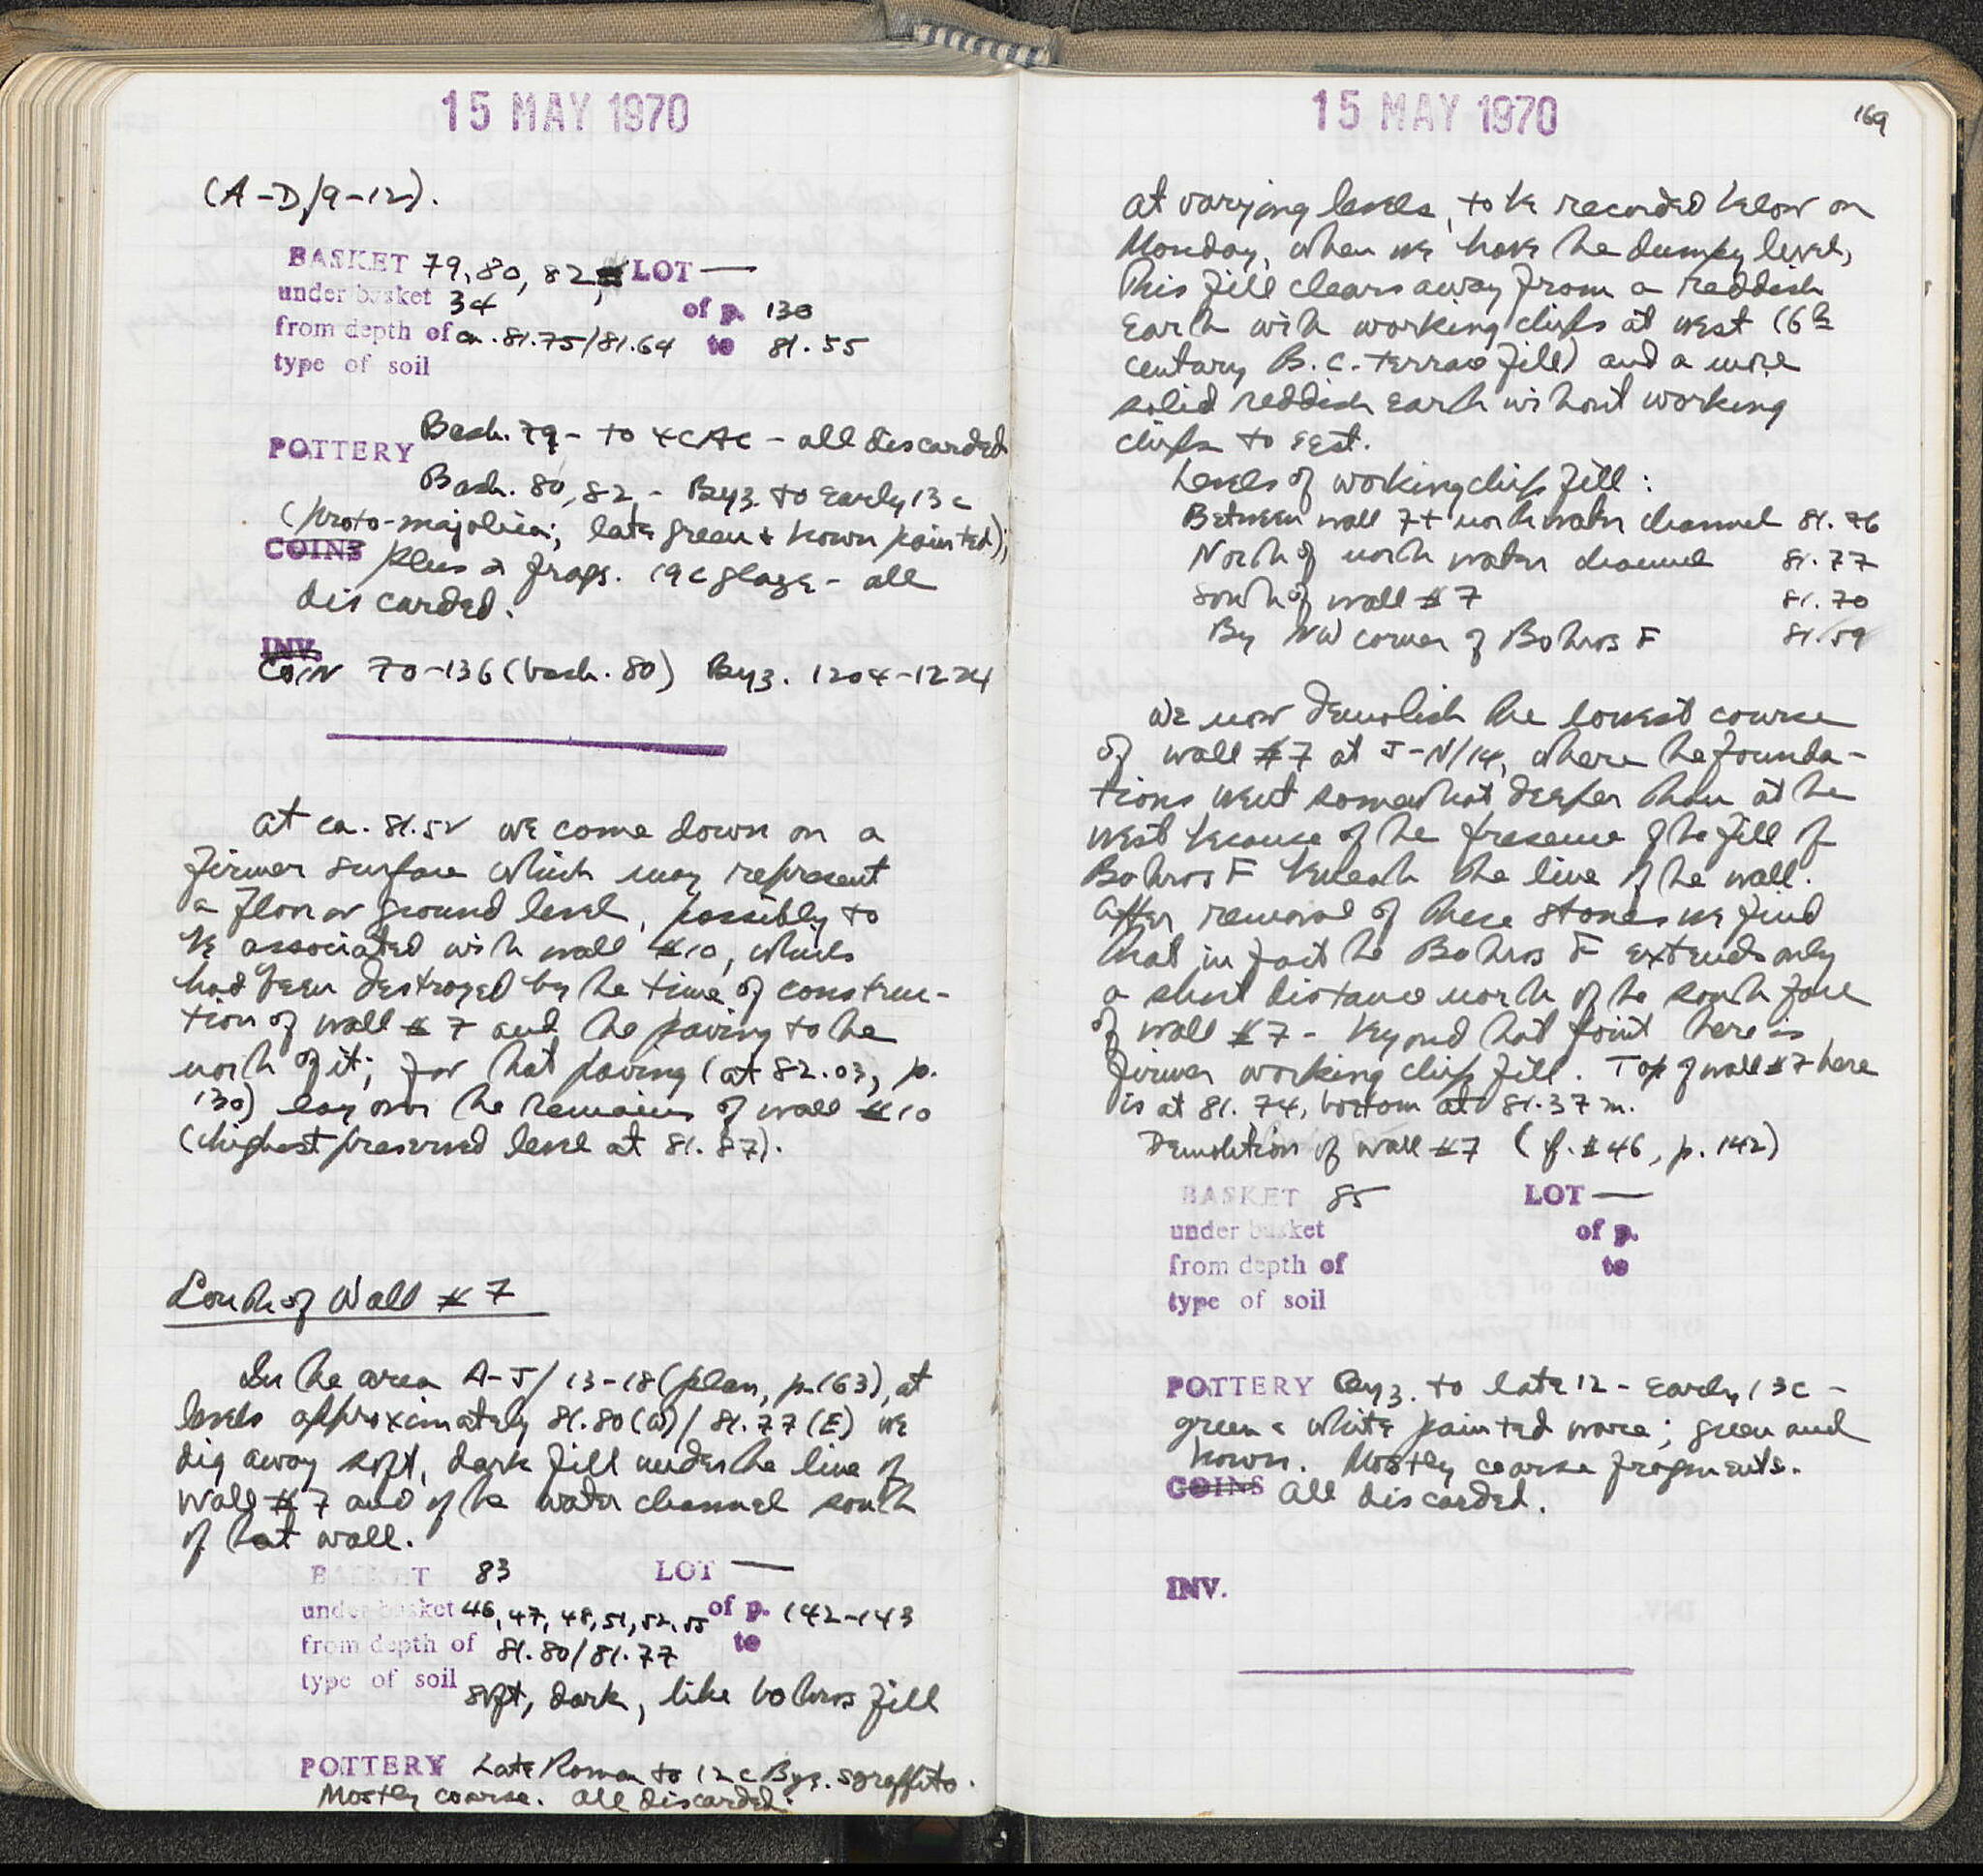 15 MAY 1970
(A-D/9-12).
BASKET 79, 80, 82, LOT —
under basket 34 of p. 130
from depth of ca. 81.75/81.64 to 81.55
type of soil
POTTERY Bask. 79 - to 4CAC - all discarded
Bask. 80, 82 - Byz. to early 13 c
(proto-majolica; late green & brown painted);
COINS plus 2 frags. 19c glaze - all
discarded.
INV.
COIN 70-136 (bask. 80) Byz. 1204-1224
At ca. 81.52 we come down on a
firmer surface which may represent
a floor or ground level, possibly to
be associated with wall #10, which
had been destroyed by the time of construc-
tion of wall #7 and the paving to the
north of it; for that paving (at 82.03, p.
130) lay over the remains of wall #10
(highest preserved level at 81.87).
South of Wall #7
In the area A-J/13-18 (plan, p. 163), at
levels approximately 81.80(W)/81.77(E) we
dig away soft, dark fill under the line of
Wall #7 and of the water channel south
of that wall.
BASKET 83 LOT —
under basket 46, 47, 48, 51, 52, 55 of p. 142-143
from depth of 81.80/81.77 to
type of soil soft, dark, like bothros fill
POTTERY Late Roman to 12c Byz. sgraffito.
Mostly coarse. All discarded.
15 MAY 1970
169
at varying levels, to be recorded below on
Monday, when we have the dumpy level,
this fill clears away from a reddish
earth with working chips at west (6th
century B.C. terrace fill) and a more
solid reddish earth without working
chips to east.
Levels of working chips fill:
Between wall 7 + north water channel 81.76
North of north water channel 81.77
South of wall #7 81.70
By NW corner of Bothros F 81.59
We now demolish the lowest course
of wall #7 at J-N/14, where the founda-
tions went somewhat deeper than at the
west because of the presence of the fill of
Bothros F beneath the line of the wall.
After removal of these stones we find
that in fact the Bothros F extends only
a short distance north of the south face
of wall #7 - beyond that point there is
firmer working chips fill. Top of wall #7 here
is at 81.74, bottom at 81.37 m.
Demolition of wall #7 (cf. #46, p. 142)
BASKET 85 LOT —
under basket of p.
from depth of to
type of soil
POTTERY Byz. to late 12 - early 13c -
green & white painted ware; green and
brown. Mostly coarse fragments.
COINS All discarded.
INV.